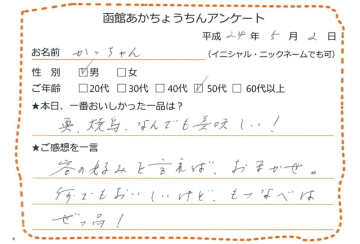 函館あかちょうちんアンケート
平成 24年 5月 2日
お名前 かっちゃん (イニシャル・ニックネームでも可)
性別 ☑男 □女
ご年齢 □20代 □30代 □40代 ☑50代 □60代以上
★本日、一番おいしかった一品は？
焼鳥、なんでも美味しい！
★ご感想を一言
客の好みと言えば、おまかせ。
何でもおいしいけど、もつなべは
ぜっ品！